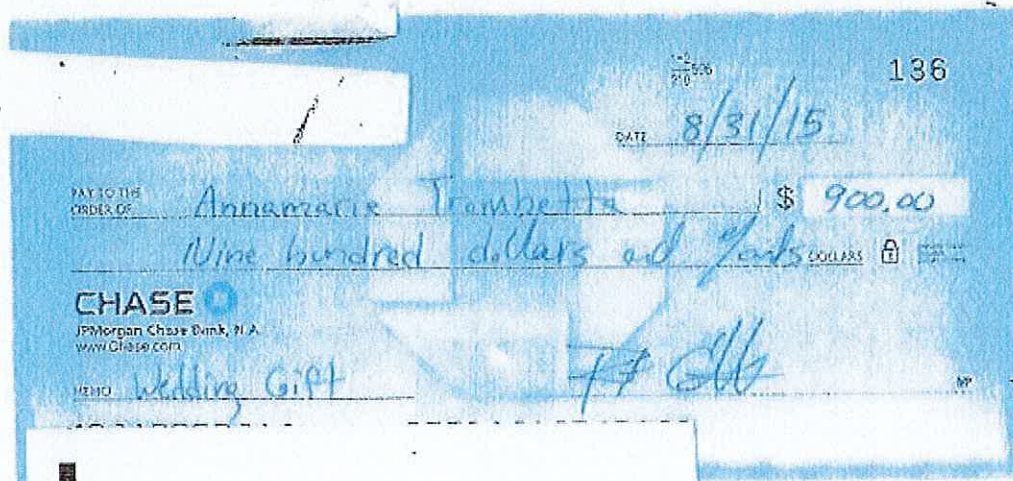 136
DATE 8/31/15
PAY TO THE
ORDER OF Annamarie Trombetta $ 900.00
Nine hundred dollars and DOLLARS
CHASE
JPMorgan Chase Bank, N.A.
www.Chase.com
MEMO Wedding Gift
MP